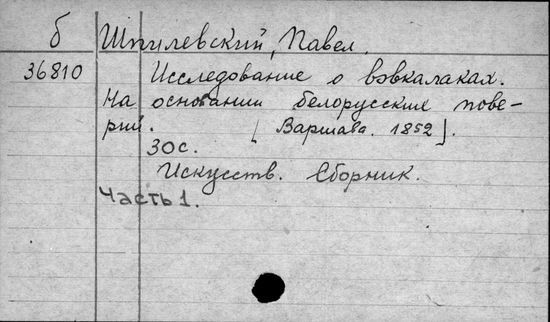 б Шпилевский, Павел.
36810 Исследование о вовкалаках.
На основании белорусских пове-
рий. [Варшава. 1852].
30с.
Искусств. Сборник.
Часть 1.